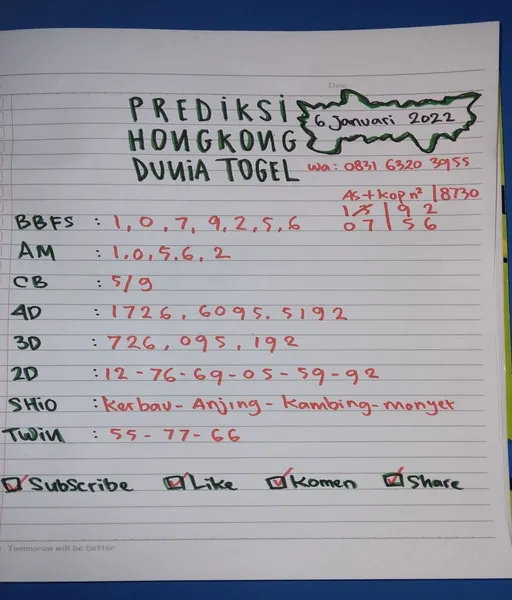 PREDIKSI
HONGKONG
DUNIA TOGEL
6 Januari 2022
wa: 0831 6320 3955
As+kop n² | 8730
9 2
07 | 56
BBFS : 1, 0, 7, 9, 2, 5, 6
AM : 1.0, 5.6, 2
CB : 5/9
4D : 1726, 6095. 5192
3D : 726, 095, 192
2D : 12-76-69-05-59-92
SHiO : Kerbau-Anjing-Kambing-monyet
TWiN : 55-77-66
Subscribe Like Komen Share
Tommorow will be better